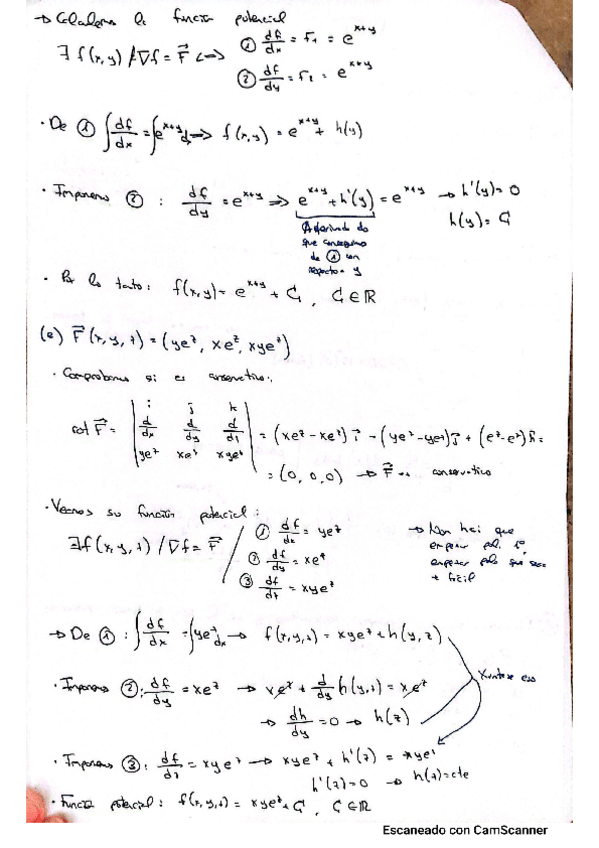 → Calculamos la función potencial
∃ f(x,y) / ∇f = F⃗ <-> ① df/dx = F₁ = e^(x+y)
② df/dy = F₂ = e^(x+y)
· De ① ∫ df/dx = ∫ e^(x+y) dx => f(x,y) = e^(x+y) + h(y)
· Imponemos ② : df/dy = e^(x+y) => e^(x+y) + h'(y) = e^(x+y) → h'(y) = 0
h(y) = C
derivando do
que conseguimo
de ① con
respecto a y
· Por lo tanto: f(x,y) = e^(x+y) + C, C ∈ ℝ
(e) F⃗(x,y,z) = (ye^z, xe^z, xye^z)
· Comprobamos si es conservativo:
rot F⃗ = | i j k |
| d/dx d/dy d/dz | = (xe^z - xe^z) i⃗ - (ye^z - ye^z) j⃗ + (e^z - e^z) k⃗ =
| ye^z xe^z xye^z |
= (0, 0, 0) → F⃗ conservativo
· Veamos su función potencial:
∃ f(x,y,z) / ∇f = F⃗ / ① df/dx = ye^z
② df/dy = xe^z
③ df/dz = xye^z
→ Non hai que
empezar pol 1º,
empezar polo que sea
+ fácil
→ De ① : ∫ df/dx = ∫ ye^z dx → f(x,y,z) = xye^z + h(y,z)
· Imponemos ②: df/dy = xe^z → xe^z + d/dy h(y,z) = xe^z
→ dh/dy = 0 → h(z)
eso
· Imponemos ③: df/dz = xye^z → xye^z + h'(z) = xye^z
h'(z) = 0 → h(z) = cte
· Función potencial: f(x,y,z) = xye^z + C, C ∈ ℝ
Escaneado con CamScanner